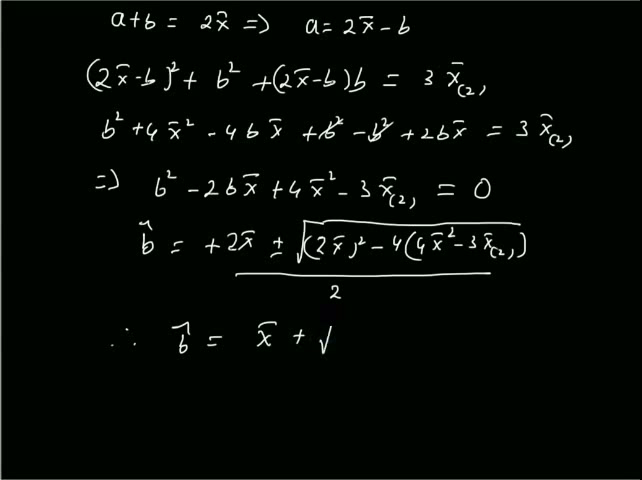 a+b = 2x̄ => a = 2x̄ - b
(2x̄-b)² + b² + (2x̄-b)b = 3 x̄₍₂₎
b² + 4x̄² - 4bx̄ + b² - b² + 2bx̄ = 3 x̄₍₂₎
=> b² - 2bx̄ + 4x̄² - 3x̄₍₂₎ = 0
b̂ = +2x̄ ± √(2x̄)² - 4(4x̄² - 3x̄₍₂₎)
2
∴ b̂ = x̄ + √